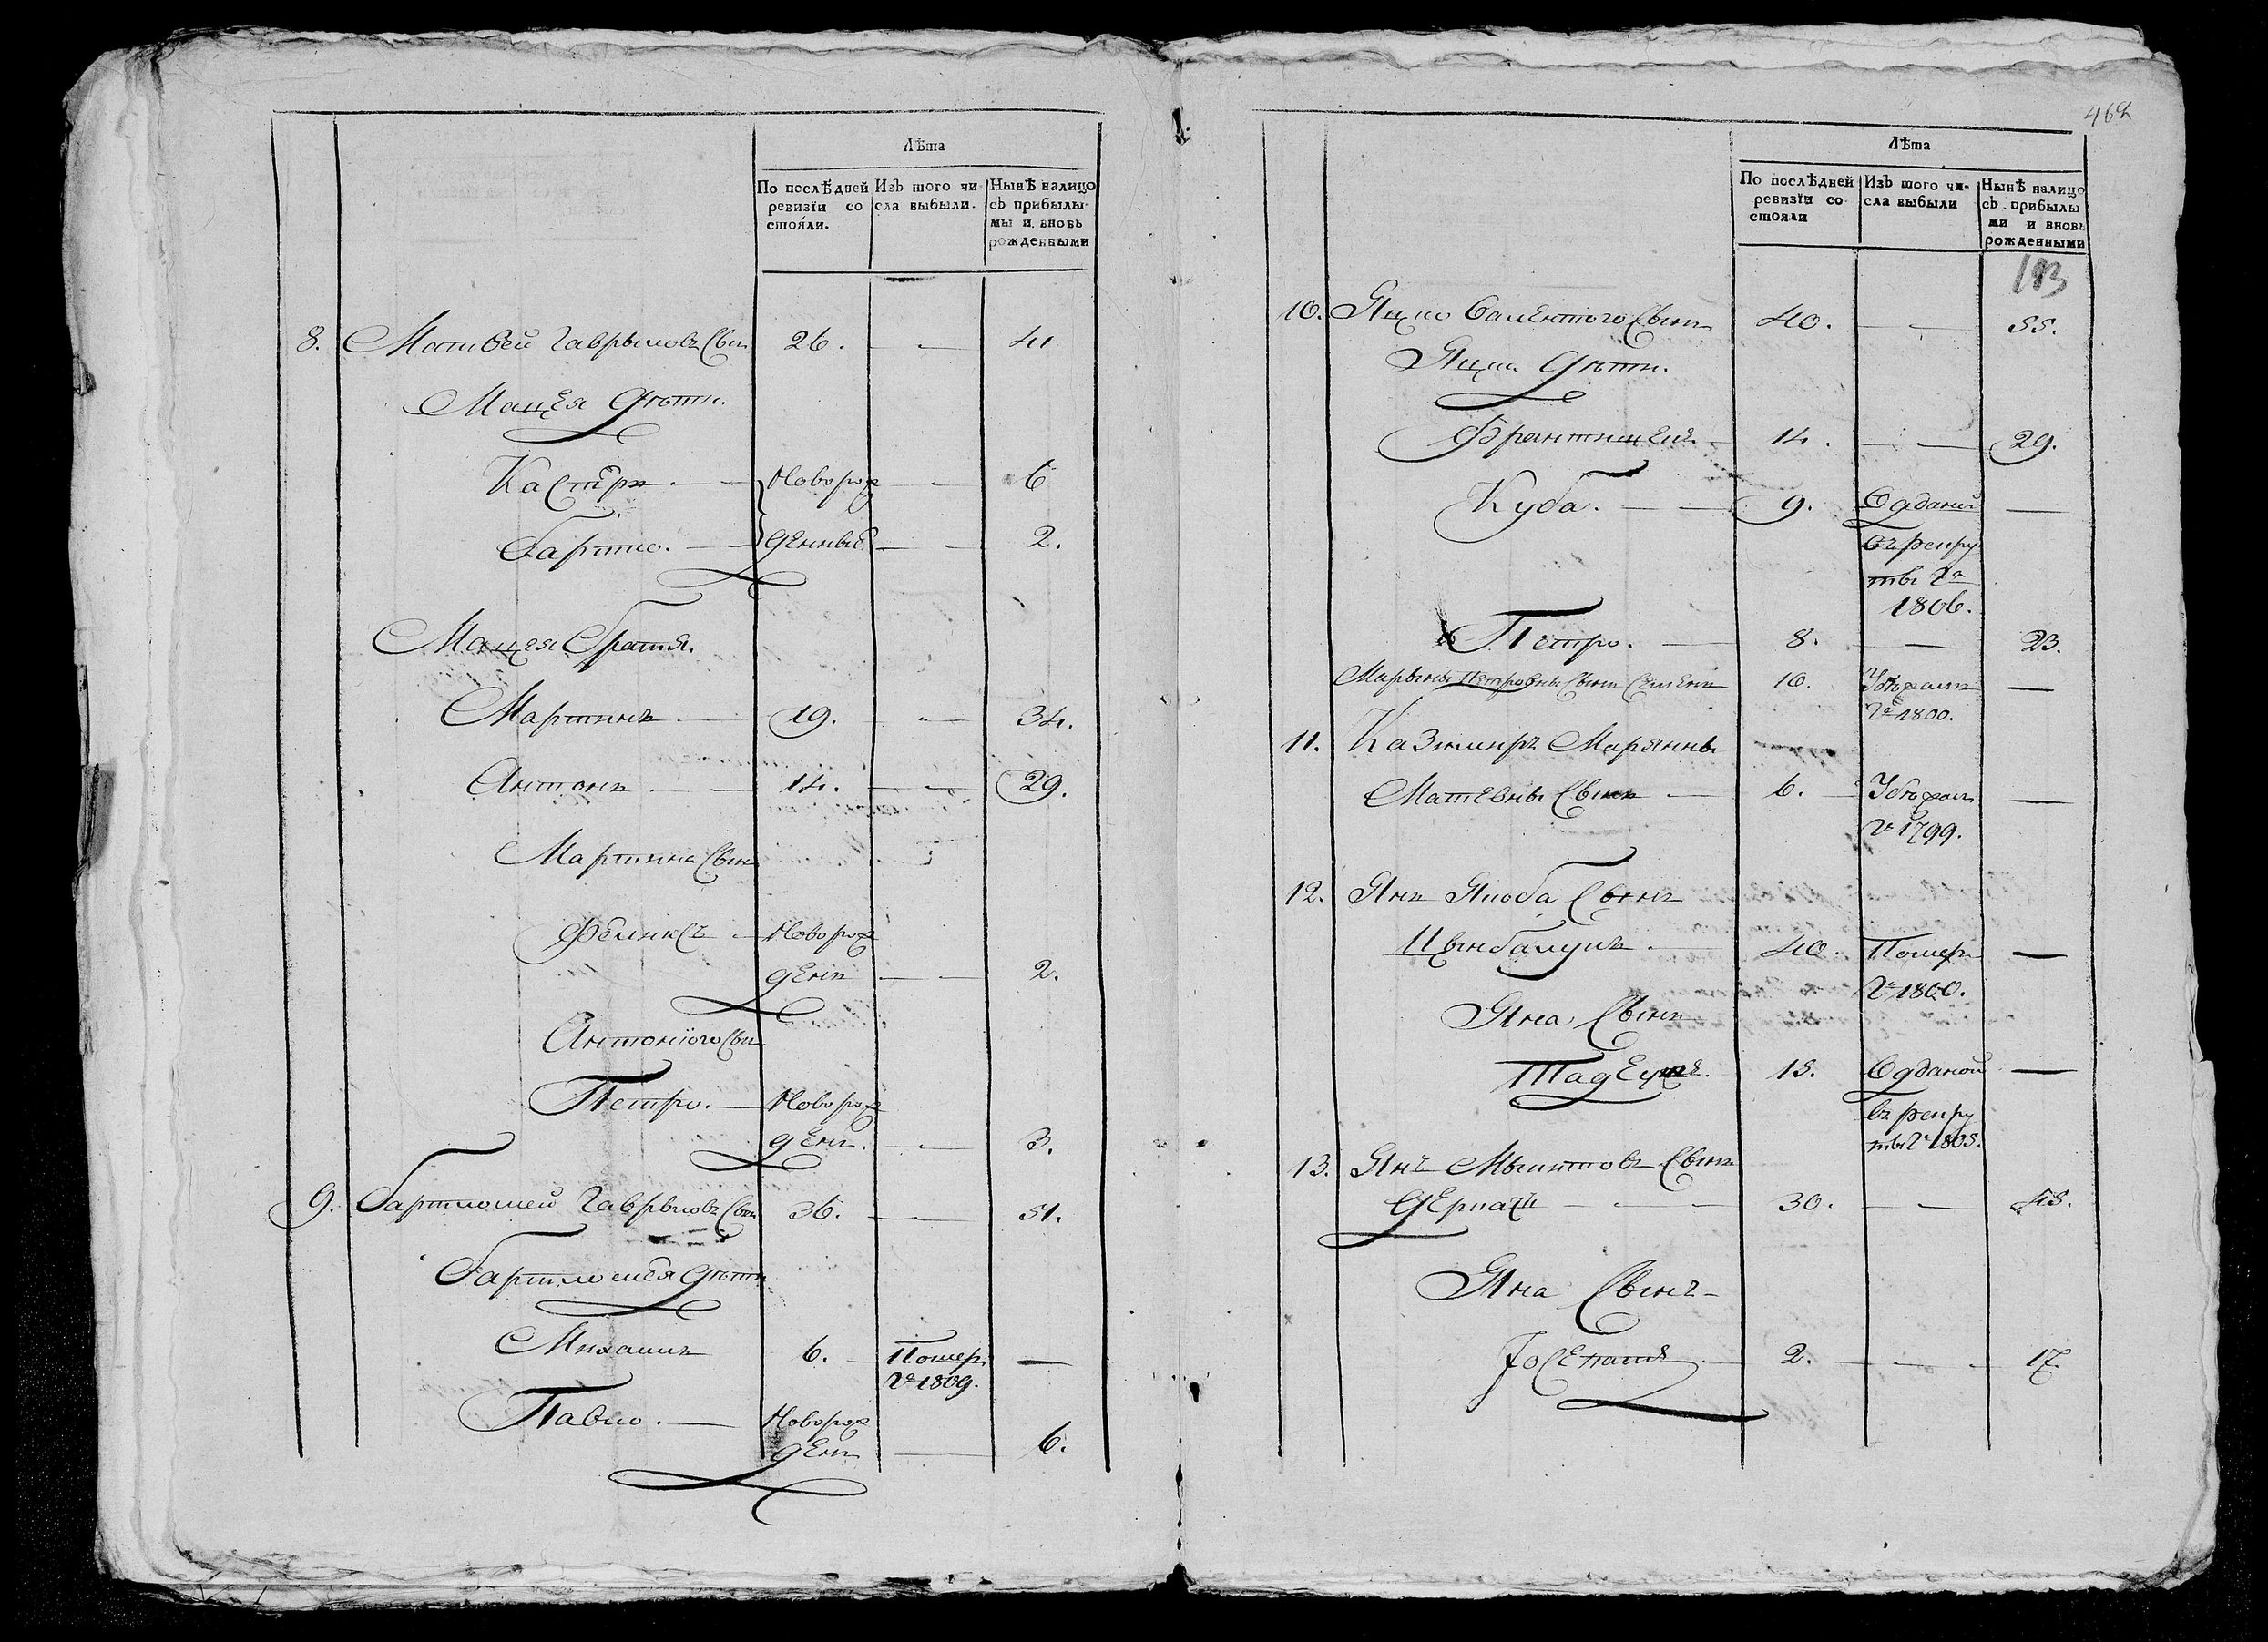 Лѣта
По послѣдней ревизїи состояли.
Изъ того числа выбыли.
Нынѣ налицо съ прибылыми и вновь рожденными
8. Матвей Гаврыловъ Сын 26. — 41
Мацея дѣти.
Каспръ. — Новорож — 6
Бартло. — денные — 2.
Мацея братія.
Мартинъ — 19. — 34.
Антонъ — 14. — 29.
Мартина Сын
Феликсъ — Новорож
денъ — 2.
Антонїого Сын
Петро. — Новорож
денъ. — 3.
9. Бартломей Гаврыловъ Сын 36. — 51.
Бартломея дѣти
Михаилъ 6. Помер —
Го 1809.
Павло. — Новорож
денъ — 6.
462
Лѣта
По послѣдней ревизїи состояли
Изъ того числа выбыли
Нынѣ налицо съ прибылыми и вновь рожденными
10. Яцко Валентого Сынъ 40. — 55.
Яцка дѣти.
Францишекъ — 14. — 29.
Куба. — 9. Одданой —
въ рекру
ты Го
1806.
Петро. — 8. — 23.
Марыны Петровны Сынъ Семенъ 10. Убѣжалъ —
Го 1800.
11. Казимиръ Марянны
Матевны Сынъ — 6. Убѣжалъ —
Го 1799.
12. Янъ Якоба Сынъ
Цымбалукъ. — 40. Помер —
Го 1800.
Яна Сынъ
Тадеушъ. 15. Одданой —
въ рекру
ты Го 1805.
13. Янъ Микитовъ Сынъ
Деркачъ — 30. — 45.
Яна Сынъ —
Іосепатъ. 2. — 17.